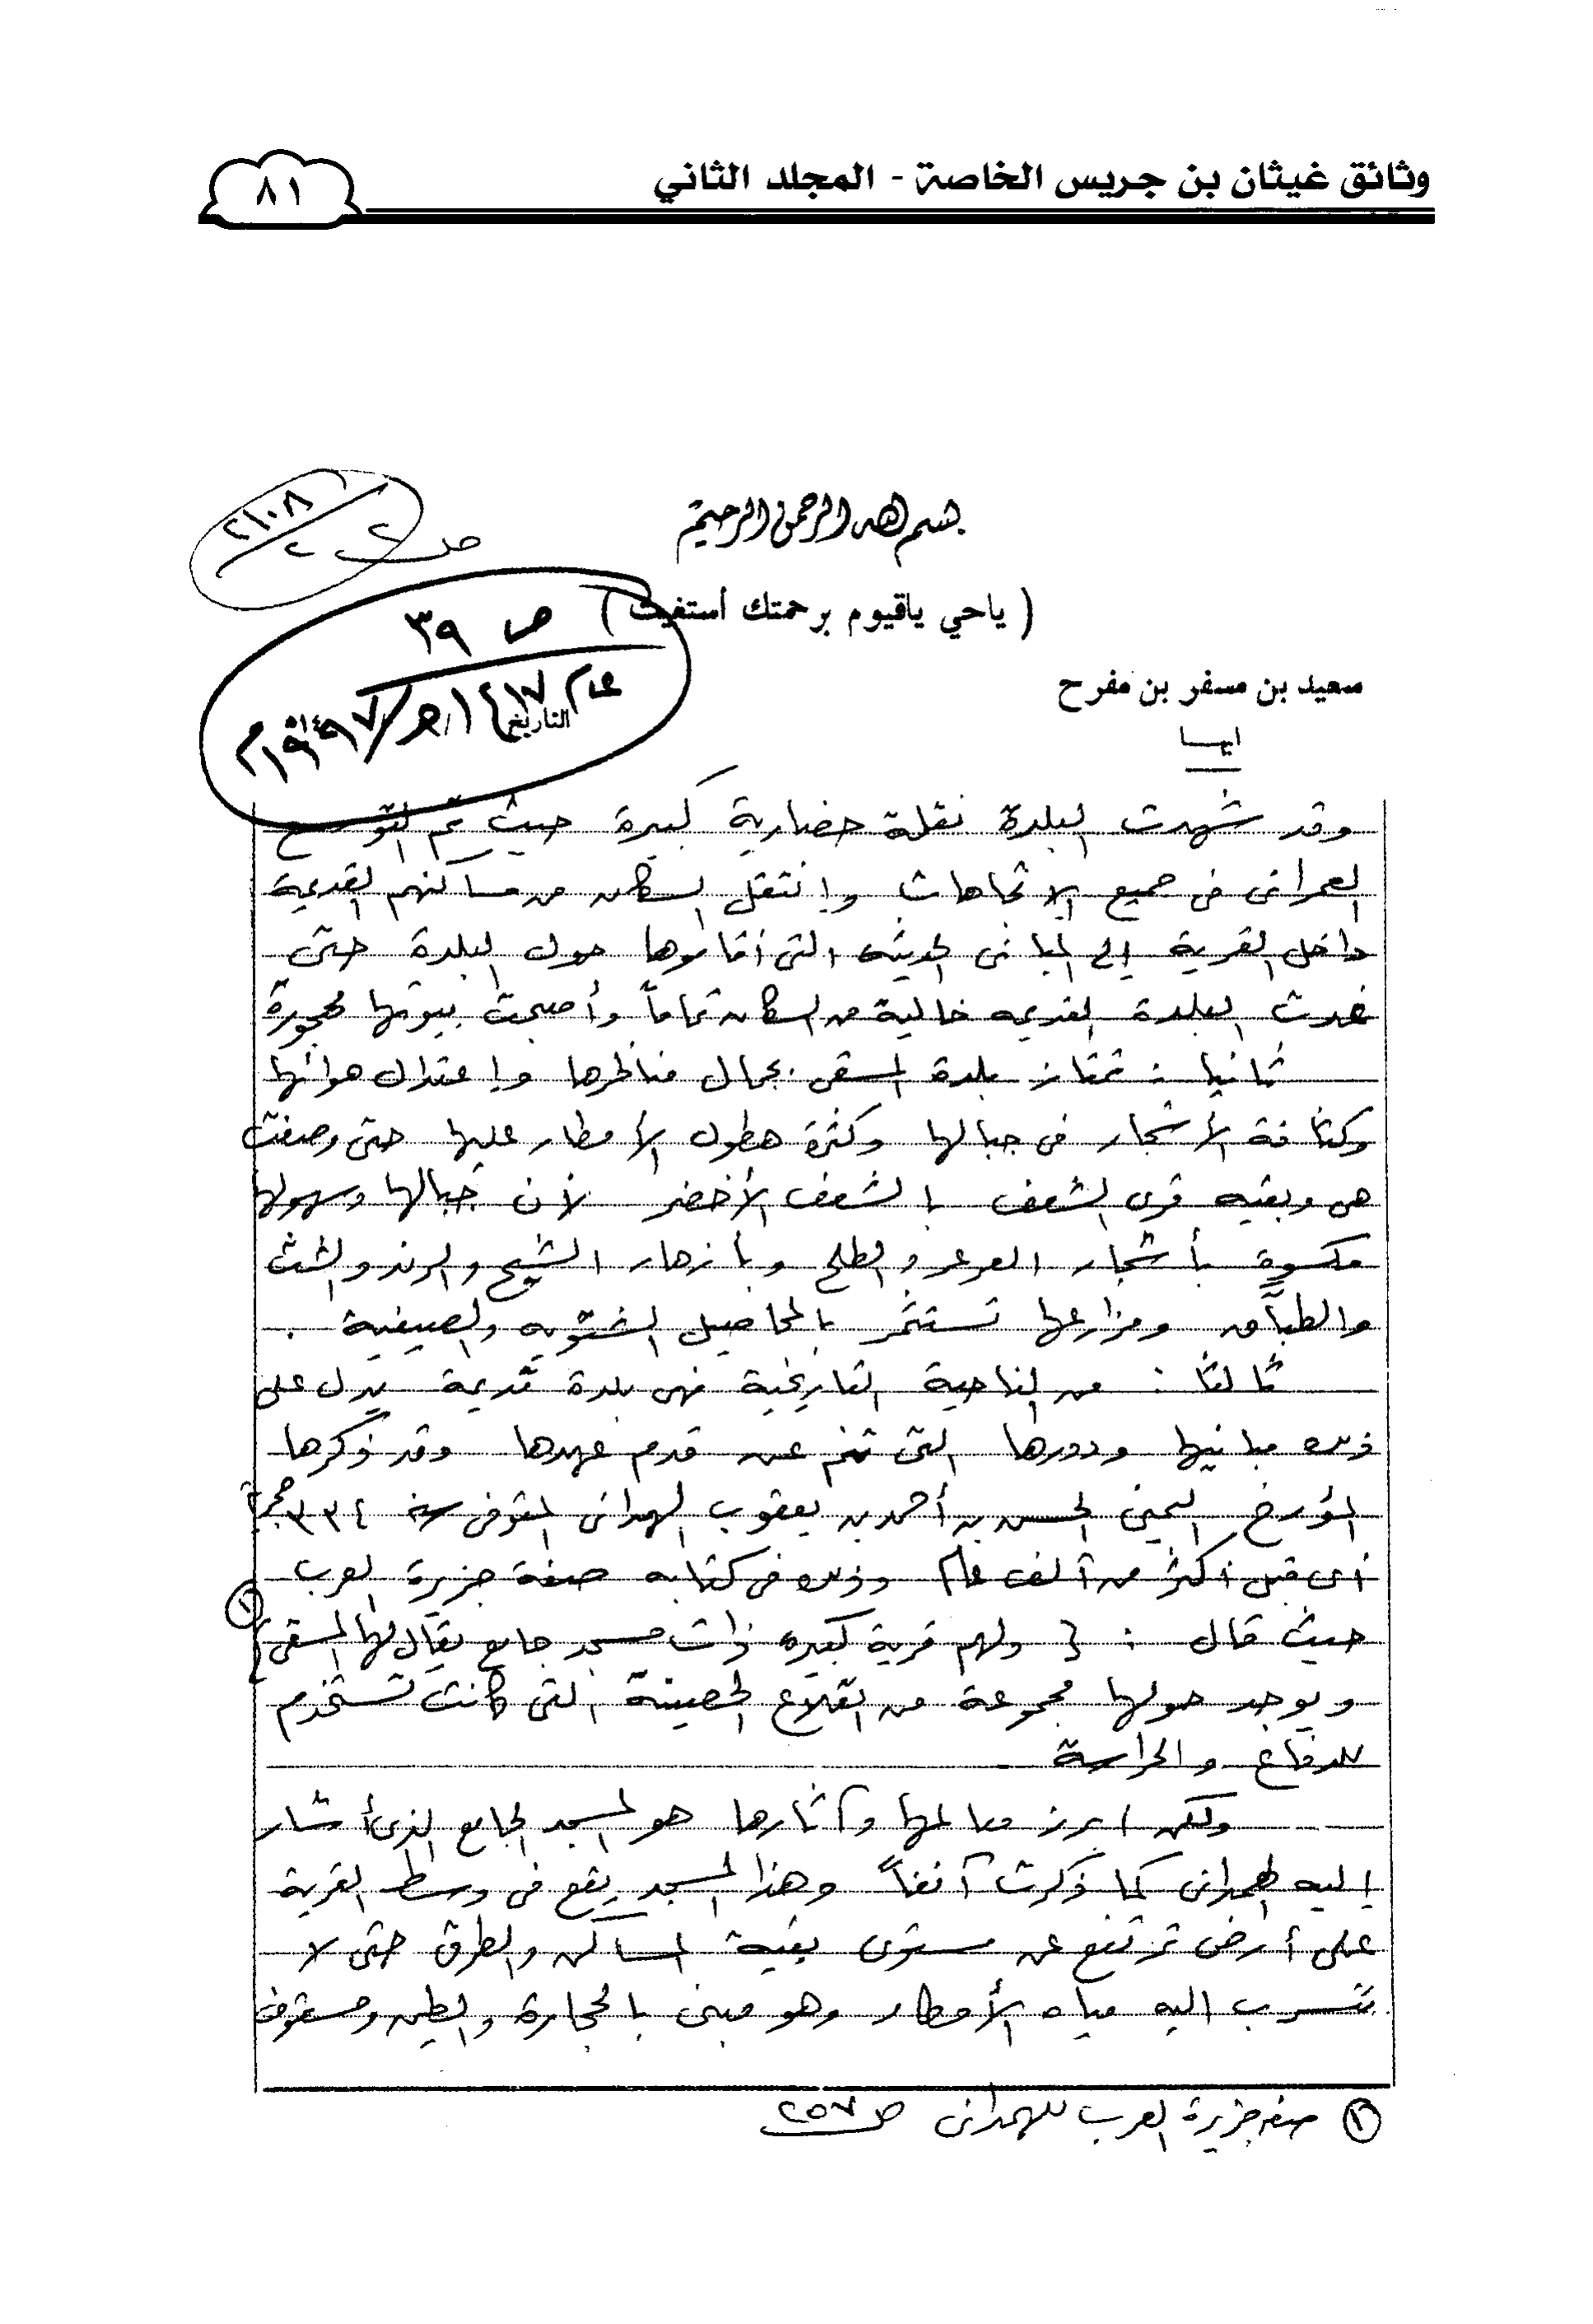 وثائق غيثان بن جريس الخاصة - المجلد الثاني
٨١
بسم الله الرحمن الرحيم
( ياحي ياقيوم برحمتك أستغيث )
ص ٣٩
عام ١٤١٧هـ/١٩٩٧م
التاريخ
سعيد بن مسفر بن مفرح
أبها
وقد شهدت البلدة نقلة حضارية كبيرة حيث تم التوسع
العمراني في جميع الاتجاهات وانتقل السكان من مساكنهم القديمة
داخل القرية إلى المباني الحديثه التي أقاموها حول البلدة حتى
غدت البلدة القديمه خالية من السكان تماماً وأصبحت بيوتها مهجورة
ثانيا : تمتاز بلدة المسقى بجمال مناظرها وإعتدال هوائها
وكثافة الأشجار في جبالها وكثرة هطول الأمطار عليها حتى وصفت
هي وبقيه قرى الشعف بالشعف الأخضر لأن جبالها وسهولها
مكسوة بأشجار العرعر والطلح وبأزهار الشيح والرند والشث
والطباق ومزارعها تستثمر بالمحاصيل الشتويه والصيفية .
ثالثا : من الناحية التاريخية فهي بلدة قديمة يدل على
ذلك مبانيها ودورها التي تنم عن قدم عهدها وقد ذكرها
المؤرخ اليمني الحسن بن أحمد بن يعقوب الهمداني المتوفى سنة ٣٣٤ هجرية
أي قبل أكثر من ألف عام وذلك في كتابه صفة جزيرة العرب
حيث قال : { ولهم قرية كبيره ذات مسجد جامع يقال لها المسقى } (١)
ويوجد حولها مجموعة من القلاع الحصينة التي كانت تستخدم
للدفاع والحراسة
ولكن ابرز معالمها وآثارها هو المسجد الجامع الذي أشار
إليه الهمداني كما ذكرت آنفاً وهذا المسجد يقع في وسط القرية
على أرض ترتفع عن مستوى بقية المساكن والطرق حتى لا
تتسرب اليه مياه الأمطار وهو مبني بالحجارة والطين ومسقوف
(١) صفة جزيرة العرب للهمداني ص ٢٥٧